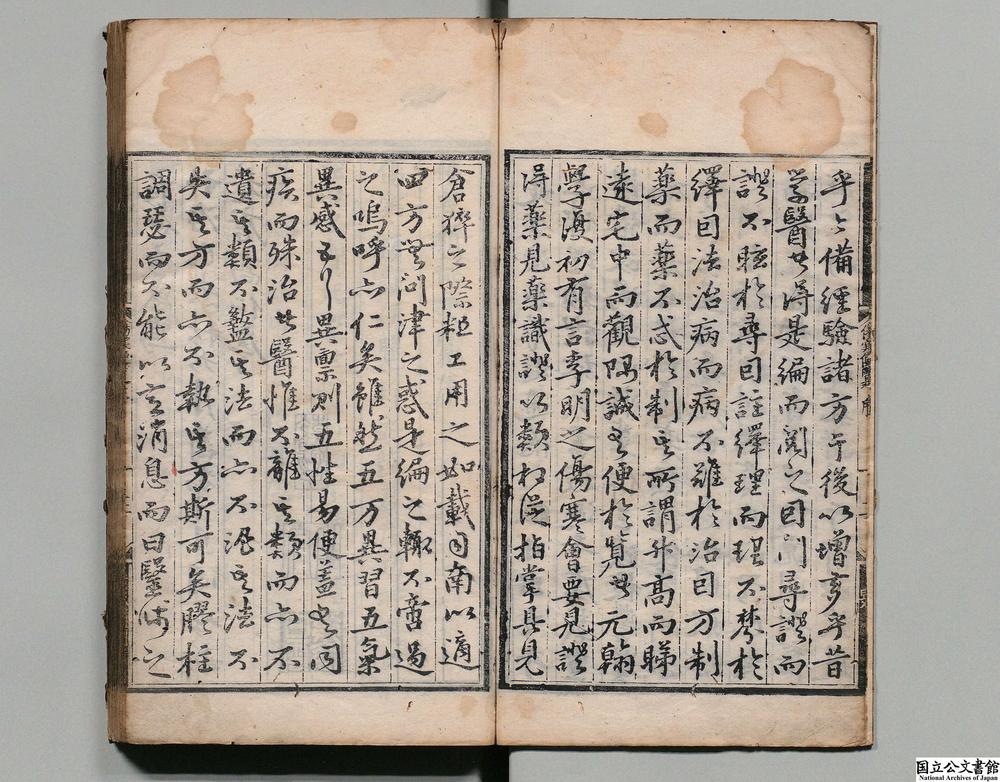 乎〻備經驗諸方於後以增多乎昔
學醫者得是編而閱之因門尋證而
證不眩於尋因註繹理而理不棼於
繹因法治病而病不難於治因方制
藥而藥不忒於制其所謂升高而睇
遠宅中而觀隅誠爲便於覽者元翰
學復初有言李明之傷寒會要見證
得藥見藥識證以類相從指掌具見
倉猝之際粗工用之如載司南以適
四方無問津之惑是編之輒不啻過
之嗚呼亦仁矣雖然五方異習五氣
異感五行異稟則五性易便蓋有同
疾而殊治者醫惟不離其類而亦不
遺其類不盭其法而亦不泥其法不
失其方而亦不執其方斯可矣膠柱
調瑟而不能以意消息而曰醫師之
国立公文書館
National Archives of Japan